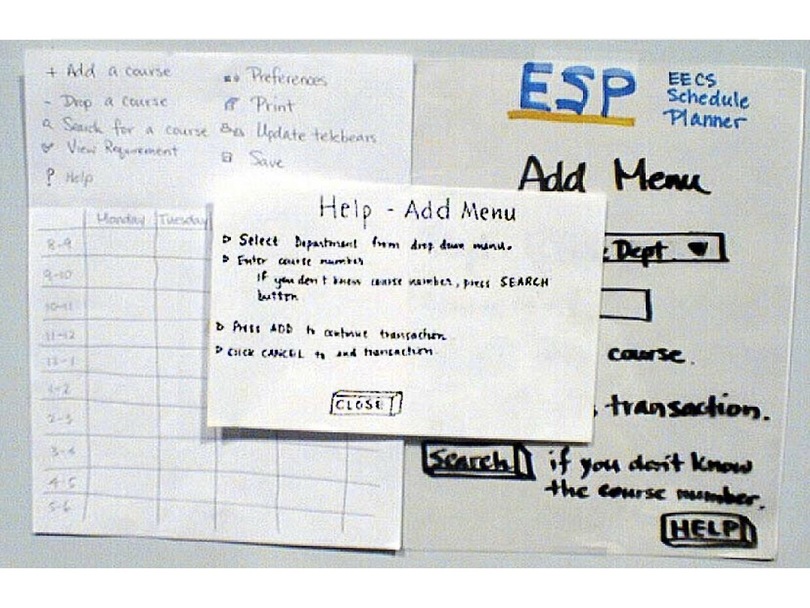 + Add a course
- Drop a course
Search for a course
View Requirement
? Help
Preferences
Print
Update telebears
Save
Monday Tuesday
8-9
9-10
10-11
11-12
12-1
1-2
2-3
3-4
4-5
5-6
Help - Add Menu
Select Department from drop down menu.
Enter course number
if you don't know course number, press SEARCH
button
Press ADD to continue transaction.
Click CANCEL to end transaction
CLOSE
ESP
EECS
Schedule
Planner
Add Menu
Dept
course.
transaction.
Search if you don't know
the course number.
HELP